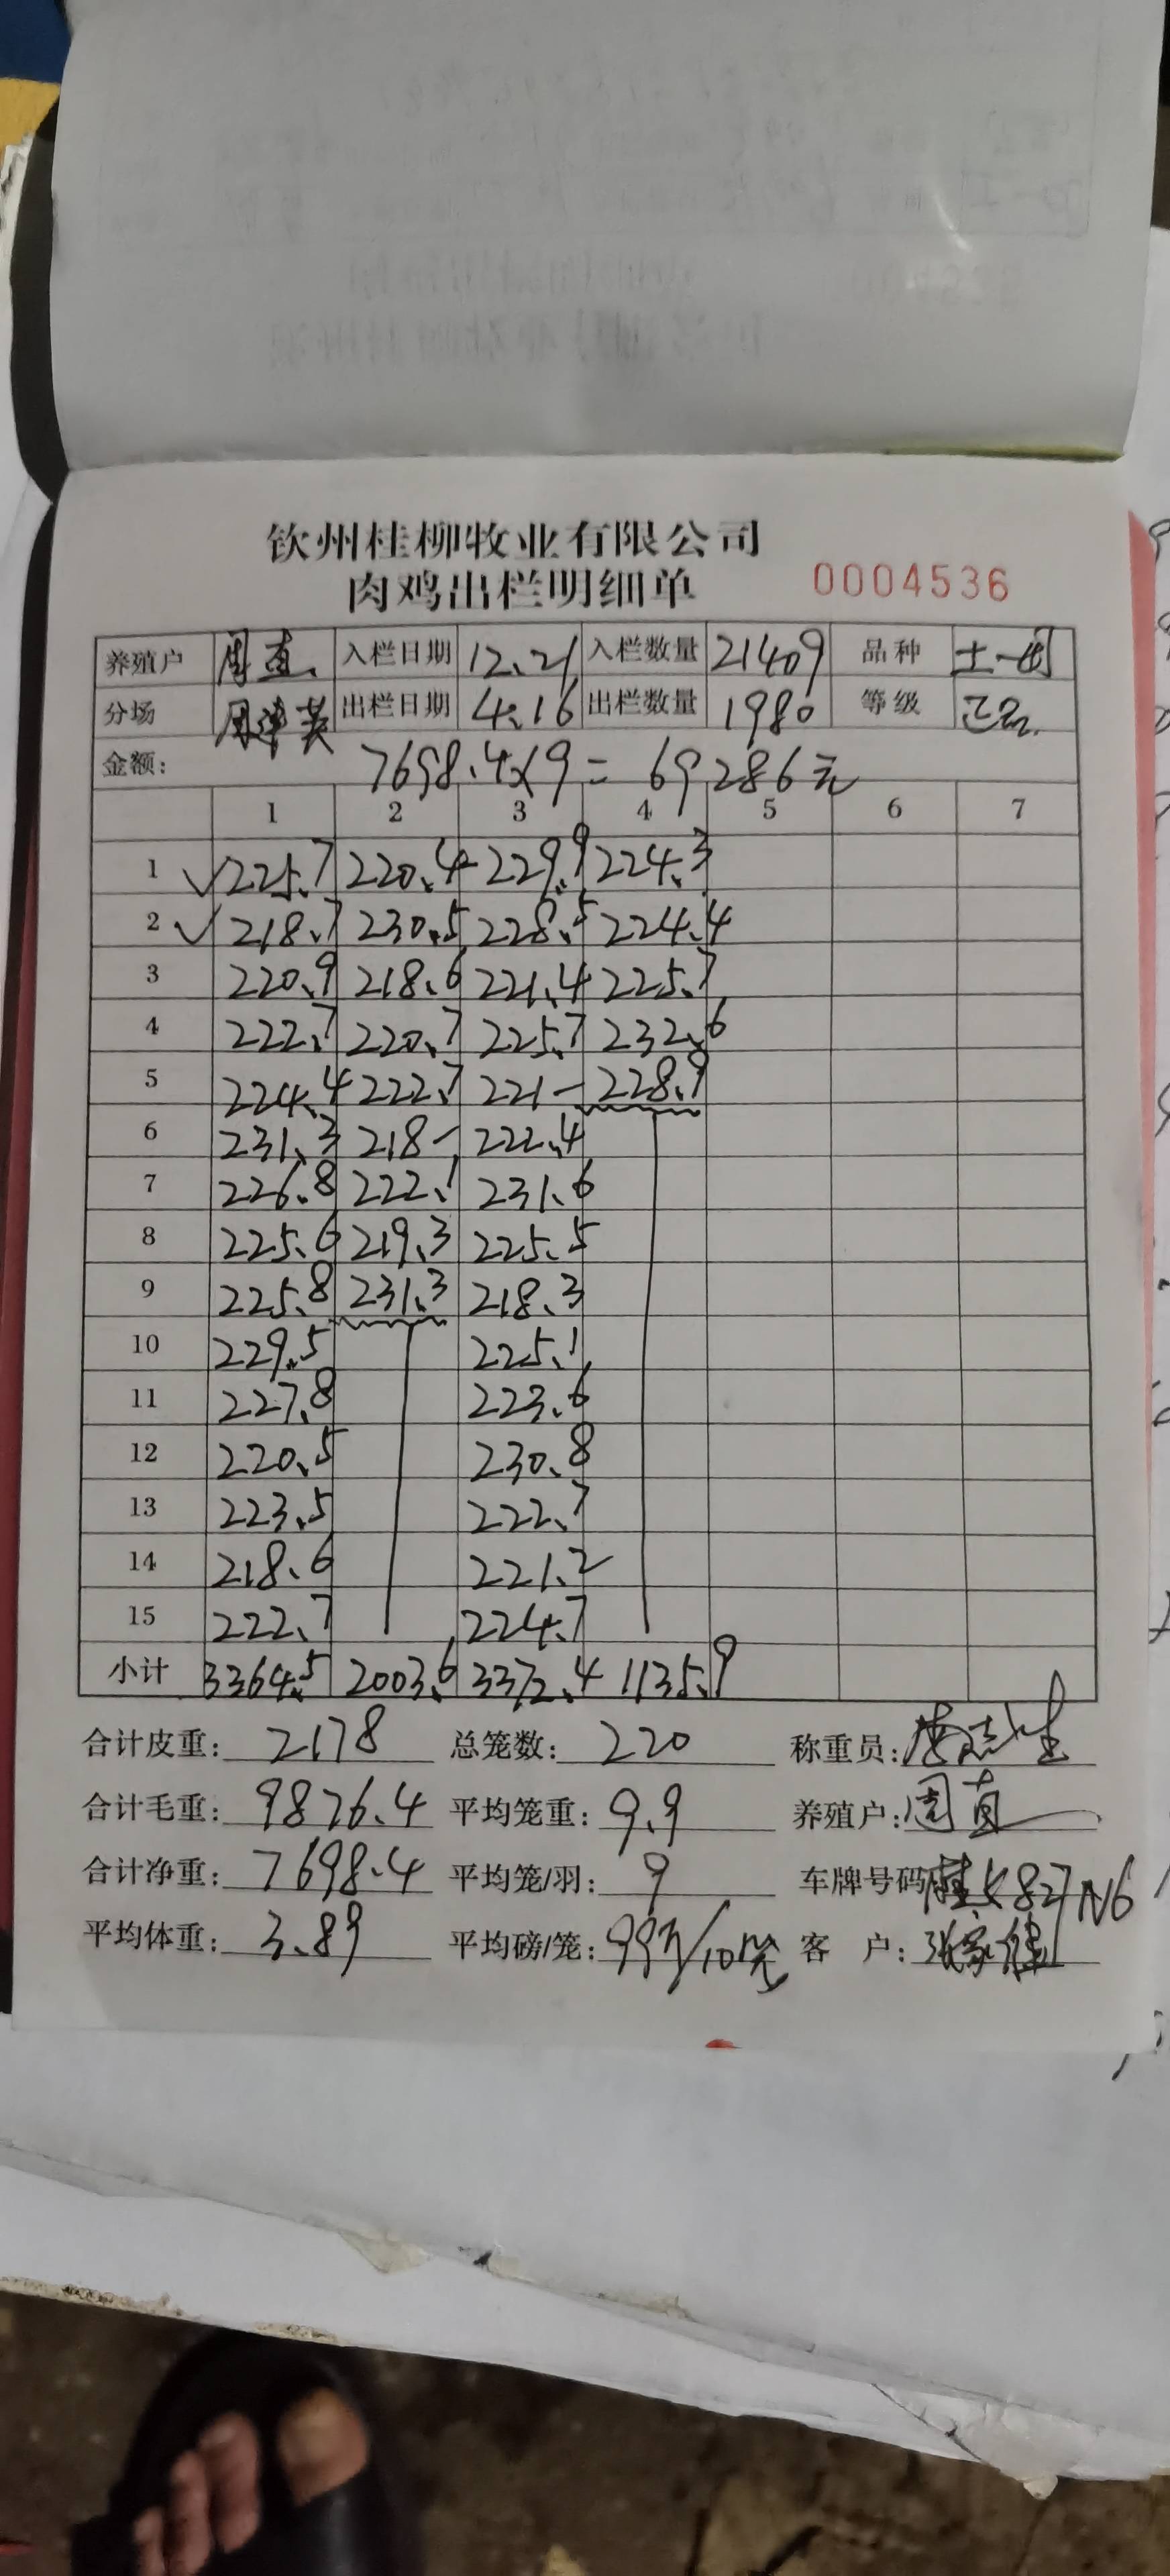 钦州桂柳牧业有限公司
肉鸡出栏明细单 0004536
养殖户 周直 入栏日期 12.21 入栏数量 21409 品种 土一
分场 出栏日期 4.16 出栏数量 1980 等级 正品
金额: 7698.4×9=69286元
1 2 3 4 5 6 7
1 √225.7 220.4 229.9 224.3
2 √218.7 230.5 228.5 224.4
3 220.9 218.6 221.4 225.7
4 222.7 220.7 225.7 232.6
5 224.4 222.7 221- 228.9
6 231.3 218- 222.4
7 226.8 222.1 231.6
8 225.6 219.3 225.5
9 225.8 231.3 218.3
10 229.5 225.1
11 227.8 223.6
12 220.5 230.8
13 223.5 222.7
14 218.6 221.2
15 222.7 224.7
小计 3364.5 2003.6 3372.4 1135.9
合计皮重: 2178 总笼数: 220 称重员:
合计毛重: 9876.4 平均笼重: 9.9 养殖户: 周直
合计净重: 7698.4 平均笼/羽: 9 车牌号码
平均体重: 3.89 平均磅/笼: 99羽/10笼 客 户: 张家健